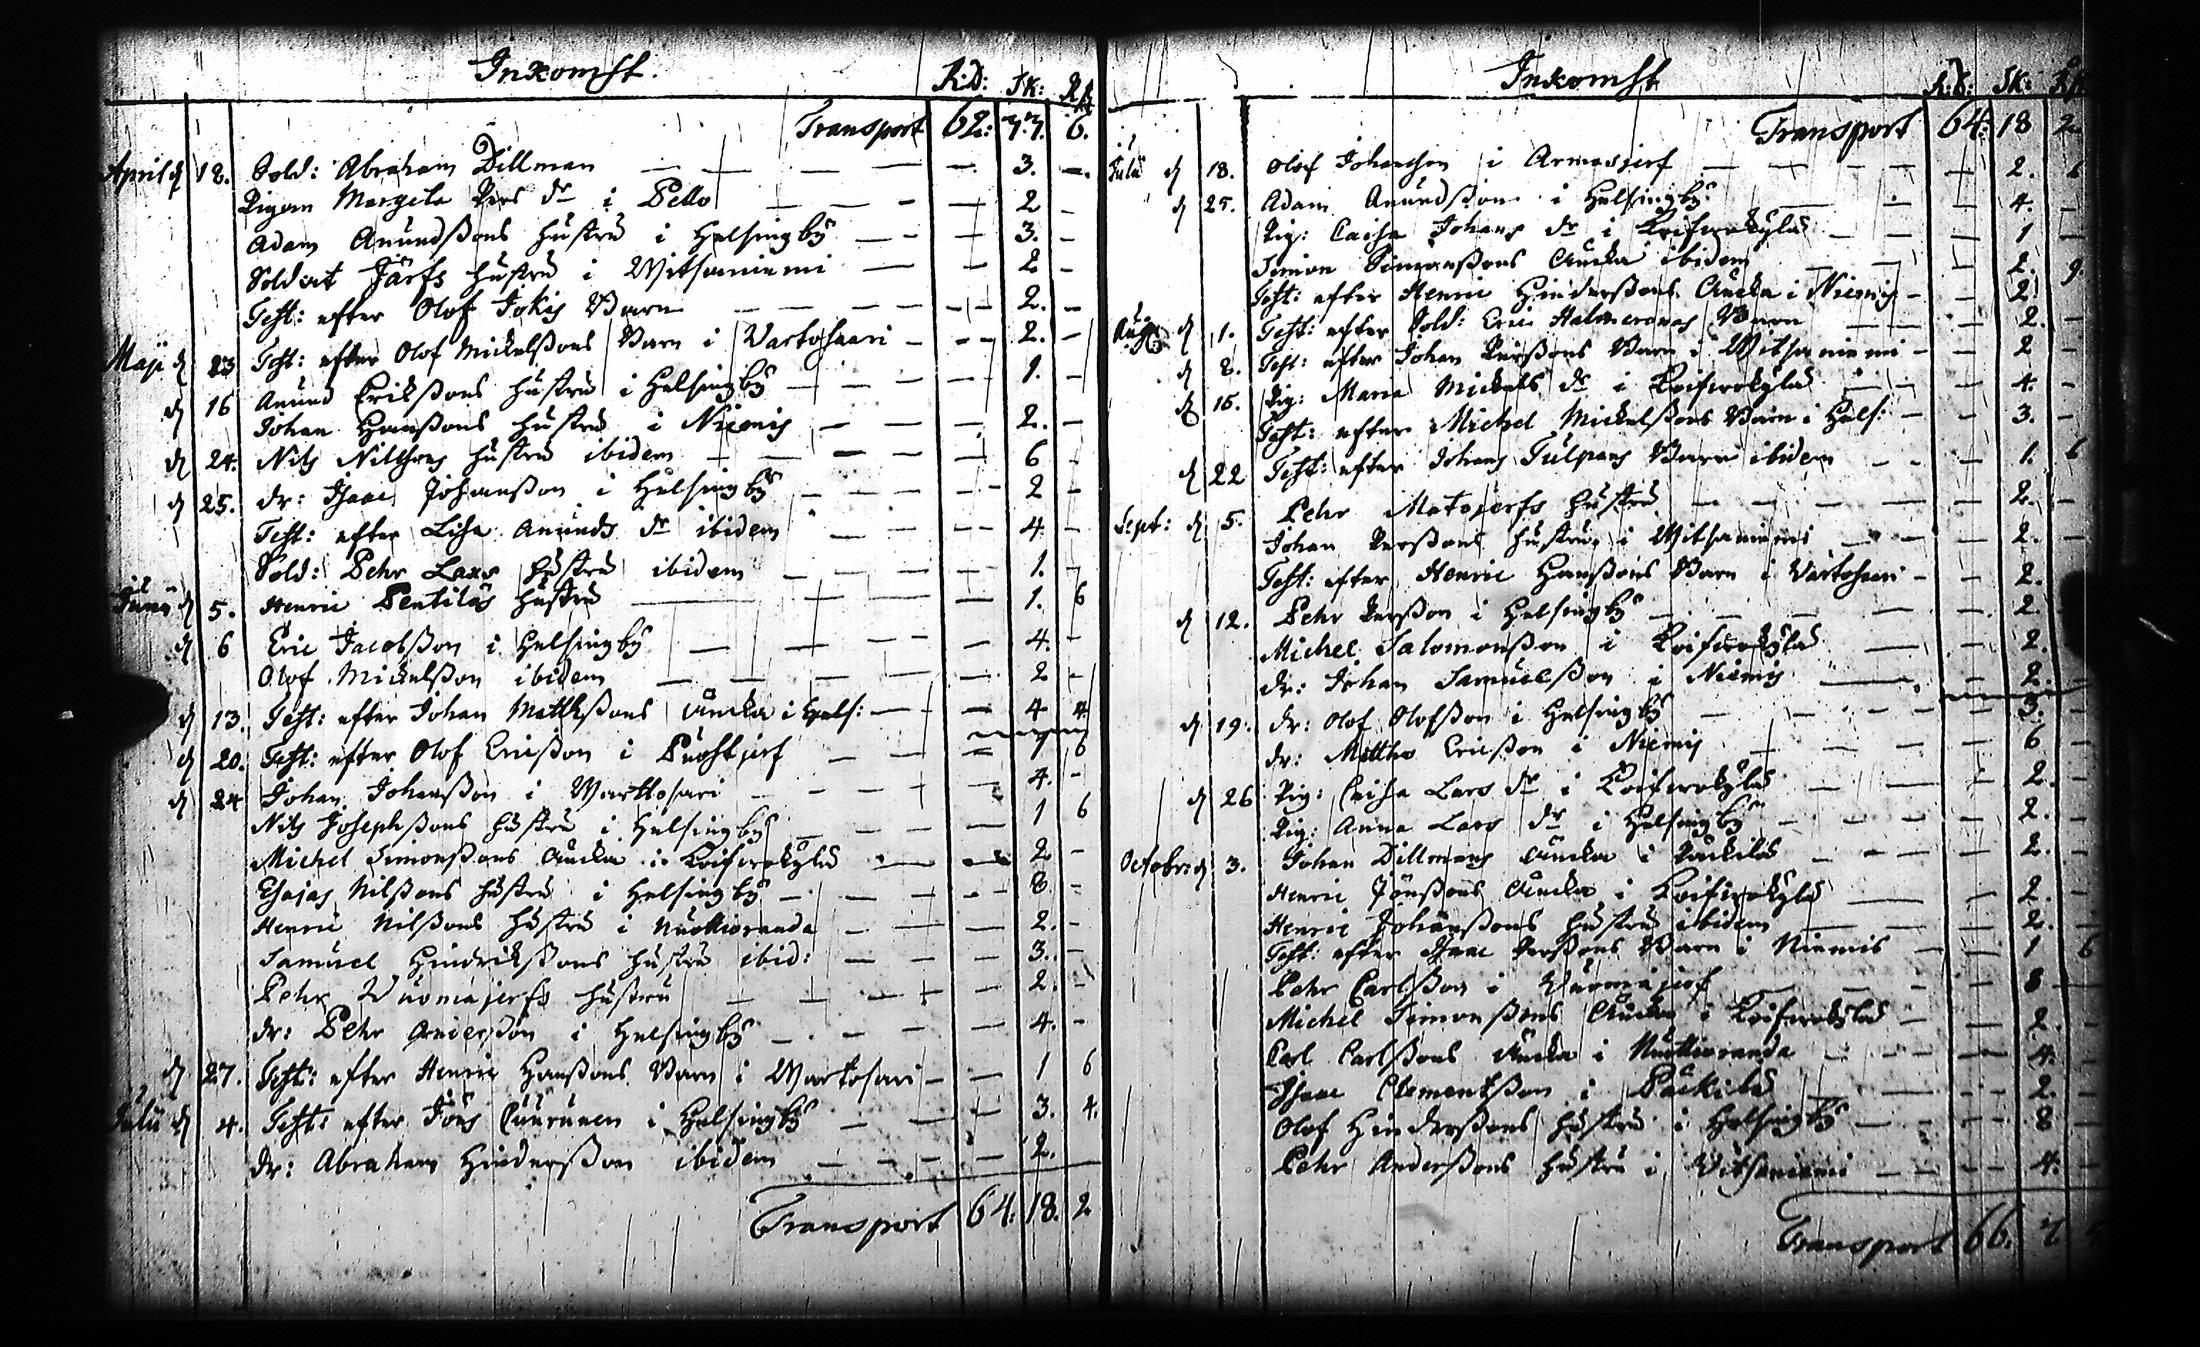 Inkomst. R:D: Sk: Rst
Transport 62: 77. 6.
April d 18. Sold: Abraham Dillman 3. -
Pigan Margeta Pers dr i Pello 2 -
Adam Anundßons hustru i Helsingby 3. -
Soldat Järfs hustru i Witsaniemi 2 -
Test: efter Olof Jokis Barn 2. -
Maji d 23 Test: efter Olof Mickelßons Barn i Vartosaari 2. -
d 16 Anund Erikßons hustru i Helsingby 1. -
Johan Hanßons hustru i Niemis 2. -
d 24. Nils Nilssons hustru ibidem 6 -
d 25. dr: Isaac Johanßon i Helsingby 2 -
Test: efter Lisa Anunds dr ibidem 4 -
Sold: Pehr Laxs hustru ibidem 1. -
Junii d 5. Henric Pentiläs hustru 1. 6
d 6 Eric Jacobßon i Helsingby 4. -
Olof Mickelßon ibidem 2 -
d 13. Test: efter Johan Matthßons Encka i Hels: 4 4.
d 20. Test: efter Olof Ericßon i Puostijerf 1 6
d 24 Johan Johanßon i Marttosari 4. -
Nils Josephßons hustru i Helsingby 1 6
Michel Simonßons Encka i Koifwokylä 2 -
Esajas Nilßons hustru i Helsingby 8. -
Henric Nilßons hustru i Nuottioranda 2. -
Samuel Hindrikßons hustru ibid: 3. -
Pehr Wuomajerfs hustru 2. -
dr: Pehr Anderßon i Helsingby 4. -
d 27. Test: efter Henric Hanßons Barn i Martosari 1 6
Julii d 4. Test: efter Jöns i Helsingby 3. 4.
dr: Abraham Hinderßon ibidem 2.
Transport 64. 18. 2
Inkomst R:D: Sk:
Transport 64. 18 2
Julii d 18. Olof Johansson i Armasjerf 2. 6
d 25. Adam Anundßon i Helsingby 4. -
Pig: Caisa Johans dr i Koifwokylä 1 -
Simon Simonßons Encka ibidem 2. 9.
Test: efter Henric Hinderßons Encka i Niemis 2. -
Aug d 1. Test: efter Sold: Eric Barn 2. -
d 8. Test: efter Johan Perßons Barn i Witsaniemi 2 -
d 15. Pig: Maria Mickels dr i Koifwokylä 4. -
Test: efter Michel Mickelßons Barn i Hels: 3.
d 22 Test: efter Johans Tulpans Barn ibidem 1. 6
Sept: d 5. Pehr Matojerfs hustru 2. -
Johan Perßons hustru i Witsaniemi 2. -
Test: efter Henric Hanßons Barn i Vartosaari 2.
d 12. Pehr Perßon i Helsingby 2.
Michel Salomonßon i Koifwokylä 2.
dr: Johan Samuelßon i Niemis 2. -
d 19. dr: Olof Olofßon i Helsingby 3.
dr: Matths Ericßon i Niemis 6 -
d 26 Pig: Caisa Lars dr i Koifwokylä 2.
Pig: Anna Lars dr i Helsingby 2. -
Octobr: d 3. Johan Dillmans Encka i Päckilä 2. -
Henric Jönßons Encka i Koifwokylä 2. -
Henric Johanßons hustru ibidem 2. -
Test: efter Isaac Perßons Barn i Niemis 1 6
Pehr Carlßon i Wuomajerf 8 -
Michel Simonßons Encka i Koifwokylä 2. -
Carl Carlßons Encka i Nuottioranda 4. -
Isaac Clementsßon i Päckilä 2. -
Olof Hinderßons hustru i Helsingby 8 -
Pehr Anderßons hustru i Witsaniemi 4. -
Transport 66. 7